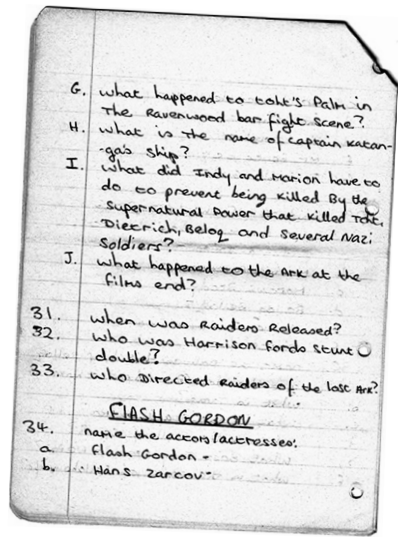 G. what happened to toht's Palm in
The Ravenwood bar fight scene?
H. what is the name of captain Katan-
-gas ship?
I. what did Indy and Marion have to
do to prevent being killed By the
supernatural Power that killed Toht,
Dietrich, Beloq and several Nazi
Soldiers?
J. what happened to the Ark at the
films end?
31. when was Raiders Released?
32. who was Harrison fords stunt
double?
33. who Directed Raiders of the lost Ark?
FLASH GORDON
34. name the actors/actresses:
a. flash Gordon -
b. Hans Zarcov -